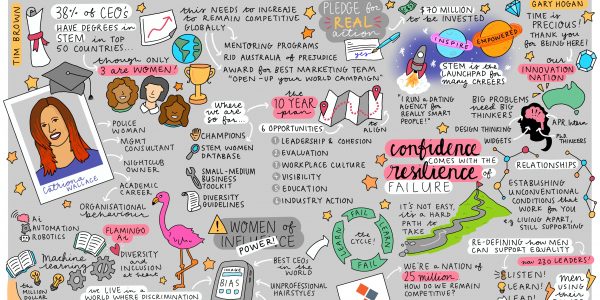 TIM BROWN
38% of CEO's
HAVE DEGREES in
STEM in TOP
50 COUNTRIES...
though only
3 are WOMEN!
this NEEDS to INCREASE
to REMAIN COMPETITIVE
GLOBALLY
MENTORING PROGRAMS
RID AUSTRALIA of PREJUDICE
AWARD for BEST MARKETING TEAM
"OPEN-UP your WORLD CAMPAIGN"
PLEDGE for
REAL
action
yes
$70 MILLION
to BE INVESTED
INSPIRE
EMPOWERED
STEM is the
LAUNCHPAD for
MANY CAREERS
GARY HOGAN
TIME is
PRECIOUS!
THANK you
for BEING HERE!
our
INNOVATION
NATION
Catriona
WALLACE
POLICE
WOMAN
MGMT
CONSULTANT
NIGHTCLUB
OWNER
ACADEMIC
CAREER
ORGANISATIONAL
behaviour
Where
we are
so far...
CHAMPIONS
STEM WOMEN
DATABASE
SMALL-MEDIUM
BUSINESS
TOOLKIT
DIVERSITY
GUIDELINES
the
10 YEAR
plan
to
ALIGN
6 OPPORTUNITIES
1 LEADERSHIP & COHESION
2 EVALUATION
3 WORKPLACE CULTURE
4 VISIBILITY
5 EDUCATION
6 INDUSTRY ACTION
"I RUN a DATING
AGENCY for
REALLY SMART
PEOPLE!"
BIG PROBLEMS
need BIG
THINKERS
DESIGN THINKING
WIDGETS
APR. Intern
PhD
THINKERS
confidence
COMES with THE
resilience of
FAILURE
IT'S NOT EASY,
it's a HARD
PATH to
TAKE
RELATIONSHIPS
ESTABLISHING
UNCONVENTIONAL
CONDITIONS that
WORK for YOU
eg LIVING APART,
STILL SUPPORTING
RE-DEFINING how MEN
CAN SUPPORT EQUALITY
now 230 LEADERS!
LISTEN!
LEARN!
LEAD!
MEN
using
WE'RE a NATION of
25 million
HOW do WE REMAIN
COMPETITIVE?
AI
AUTOMATION
ROBOTICS
FLAMINGO
AI
Machine
learning
DIVERSITY
and INCLUSION
at heart
the
MILLION
DOLLAR
WE LIVE in a
WORLD WHERE DISCRIMINATION
WOMEN of
INFLUENCE
POWER!
IMAGE
BIAS
BEST CEOs
in the
WORLD
UNPROFESSIONAL
HAIRSTYLES
FAIL
LEARN
FAIL
LEARN
the
CYCLE!